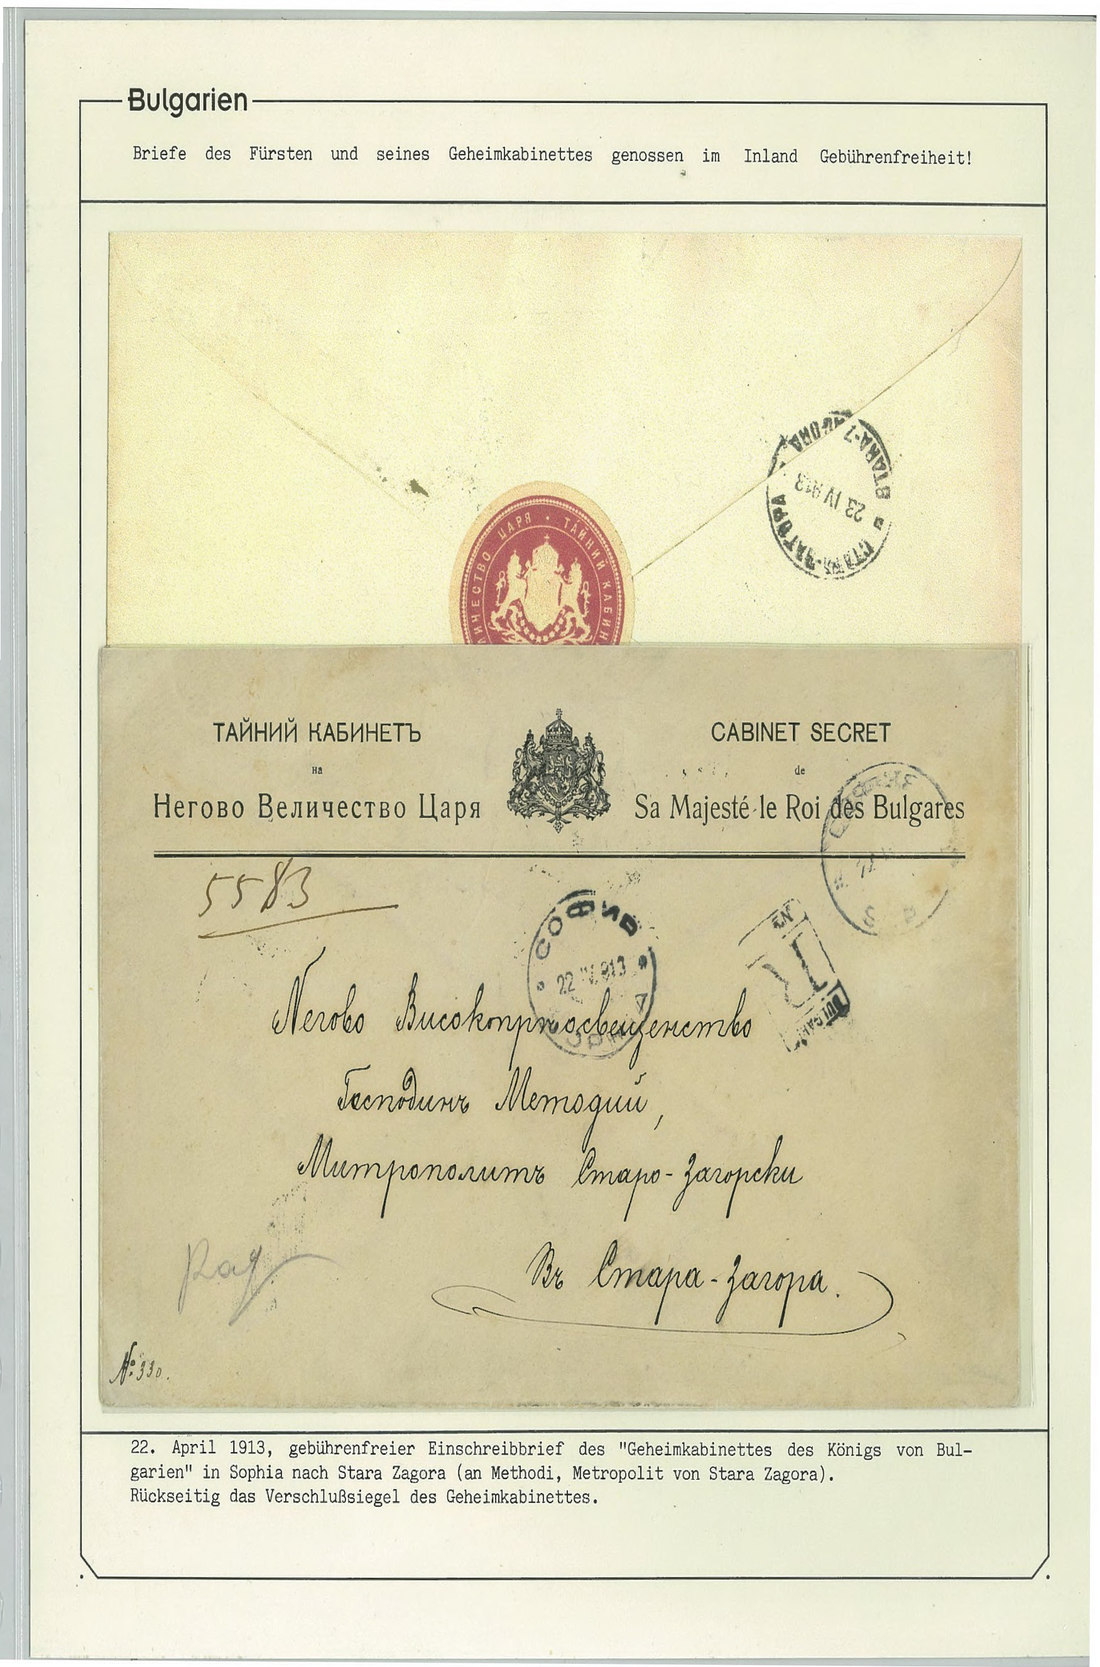 Bulgarien
Briefe des Fürsten und seines Geheimkabinettes genossen im Inland Gebührenfreiheit!
СТАРА-ЗАГОРА
STARA-ZAGORA
23 IV 913
ЦАРЯ • ТАЙНИЙ
ТАЙНИЙ КАБИНЕТЪ
на
Негово Величество Царя
CABINET SECRET
de
Sa Majesté le Roi des Bulgares
5583
СОФИЯ
22 IV 913
R
Негово Високопрѣосвещенство
Господинъ Методий,
Митрополитъ Старо-Загорски
Въ Стара-Загора.
№ 330.
22. April 1913, gebührenfreier Einschreibbrief des "Geheimkabinettes des Königs von Bul-
garien" in Sophia nach Stara Zagora (an Methodi, Metropolit von Stara Zagora).
Rückseitig das Verschlußsiegel des Geheimkabinettes.